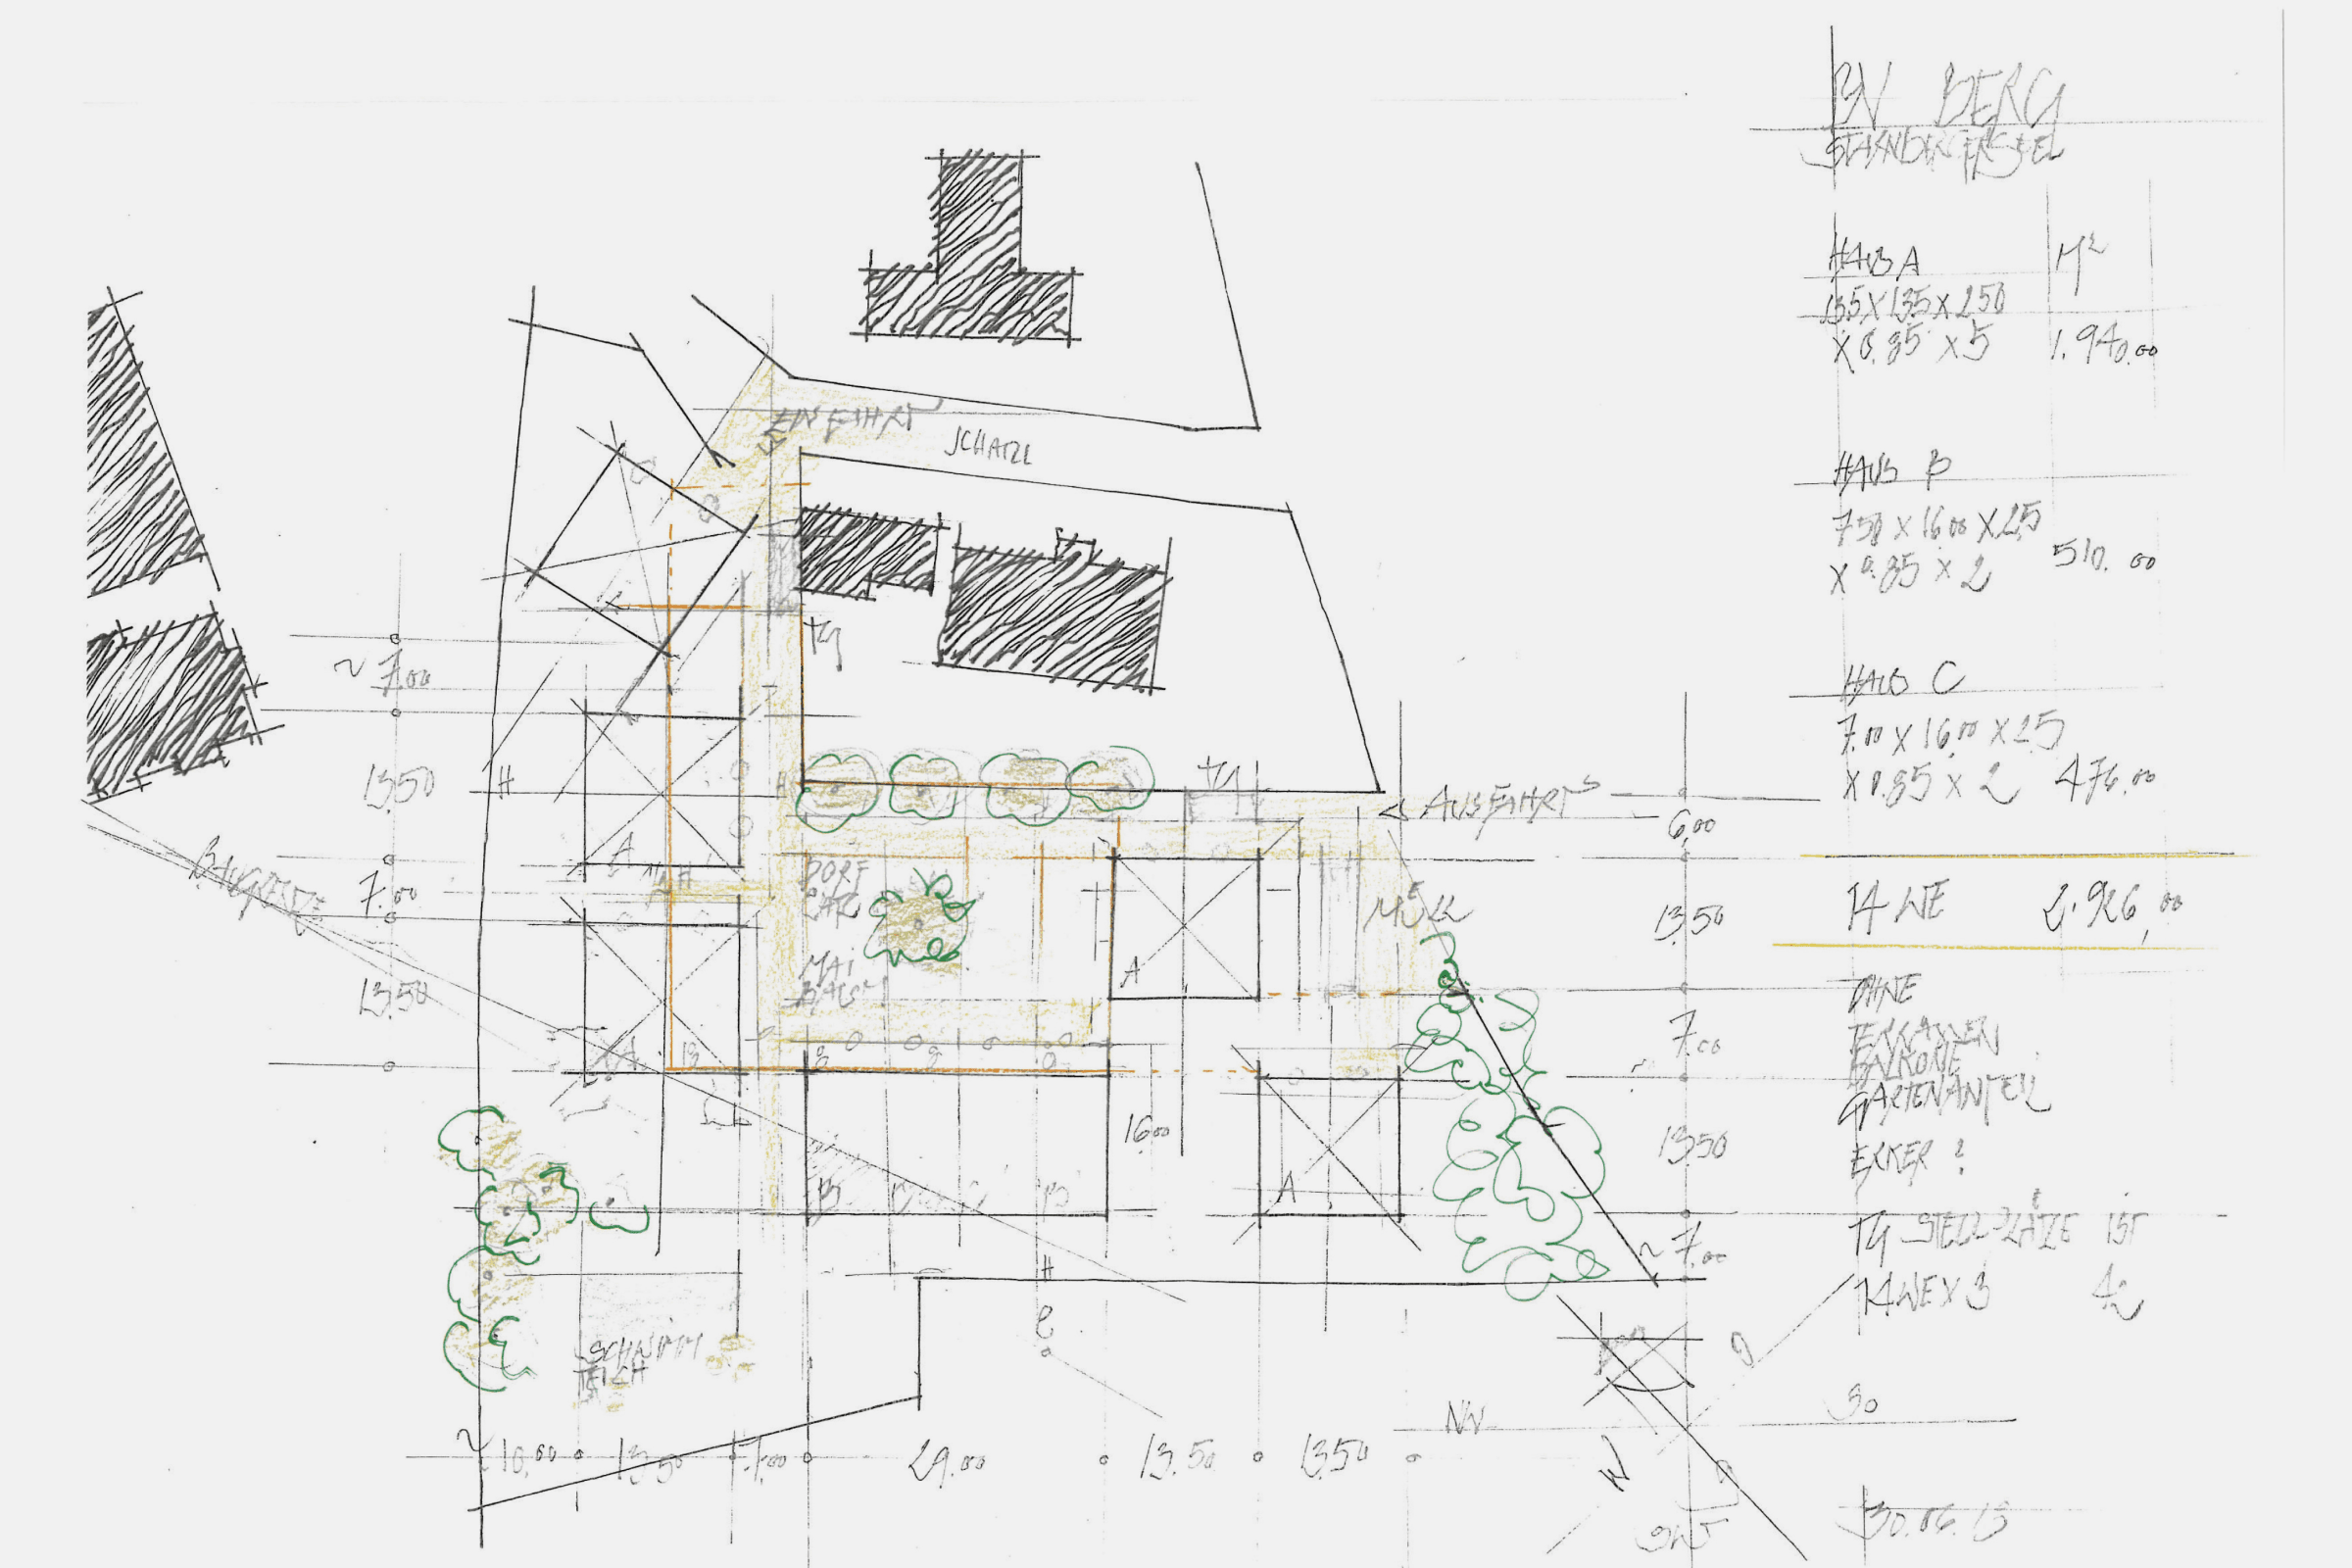 BV BERG
STARNBERGERSEE
HAUS A M²
13.5 X 13.5 X 2.50
X 0.85 X 5 1.940.00
HAUS B
7.50 X 16.00 X 2.5
X 0.85 X 2 510.00
HAUS C
7.00 X 16.00 X 2.5
X 0.85 X 2 476.00
14 WE 2.926,00
OHNE
TERRASSEN
BALKONE
GARTENANTEIL
ERKER ?
TG STELLPLÄTZE
14 WE X 3 42
30.06.15
EINFAHRT
SCHATZL
TG
~ 7.00
13.50
7.00
13.50
BAUGRENZE
H
H
A
MÜLL
DORF
PLATZ
MAI
BAUM
TG
AUSFAHRT
6.00
13.50
7.00
13.50
~ 7.00
MÜLL
A
A
A
16.00
B C C B
H
SCHWIMM
TEICH
~ 10.00 13.50 7.00 29.00 13.50 13.50
NW
O
SO
W
SW